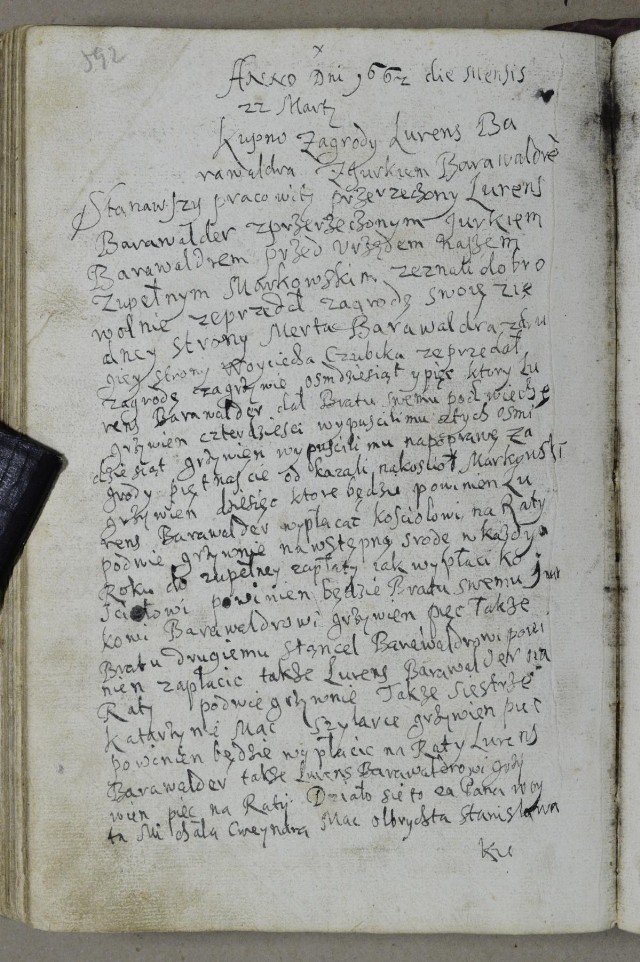 592
x
Anno Dni 1662 die Mensis
22 Marty
Kupno Zagrody Lurens Ba
rawaldra Z Jurkiem Barawaldrē
Stanawszy pracowity przerzeczony Lurens
Barawalder zprzerzeczonym Jurkiem
Barawaldrem przed urzędem Kaszem
Zupełnym Markowskim zeznali dobro
wolnie zeprzedał zagrodę swoię zie
dney strony Merta Barawaldra zdru
giey strony Woyciecha Czubika zeprzedał
zagrodę zagrzywie ośmdziesiąt y pięc ktory Lu
rens Barawalder dał Bratu swemu pod wiechę
grzywien czterdziesci wypuscili mu ztych osmi
dziesiąt grzywien wypuscili mu naposprawę za
grody piętnascie od kazali nakościoł Markowski
grzywien dziesięc ktore będzie powinien Lu
rens Barawalder wypłacac kosciołowi na Raty
podwie grzywnie nawstępną srodę w kazdy
Roku do zupełney zapłaty iak wypłaci ko
sciołowi powinien będzie Bratu swemu Jur
kowi Barawaldrowi grzywien pięc Także
Bratu drugiemu Stencel Barawaldrowi powi
nien zapłacic także Lurens Barawalder na
Raty podwie grzywnie Także Siestrze
Katarzynie Mac Szylarce grzywien pięc
powinien będzie wypłacic na Raty Lurens
Barawalder także Lurens Barawaldrowi grzy
wien pięc na Raty. Działo się to za Pana Woy
ta Michała Cweyndra Mac Olbrychta Stanisława
Ku